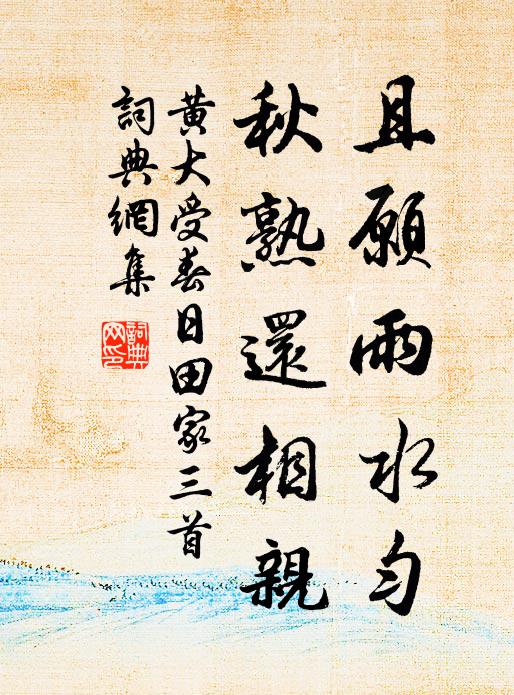 且願雨水勻
秋熟還相親
黃大受春日田家三首
詞典網集
詞典
網印